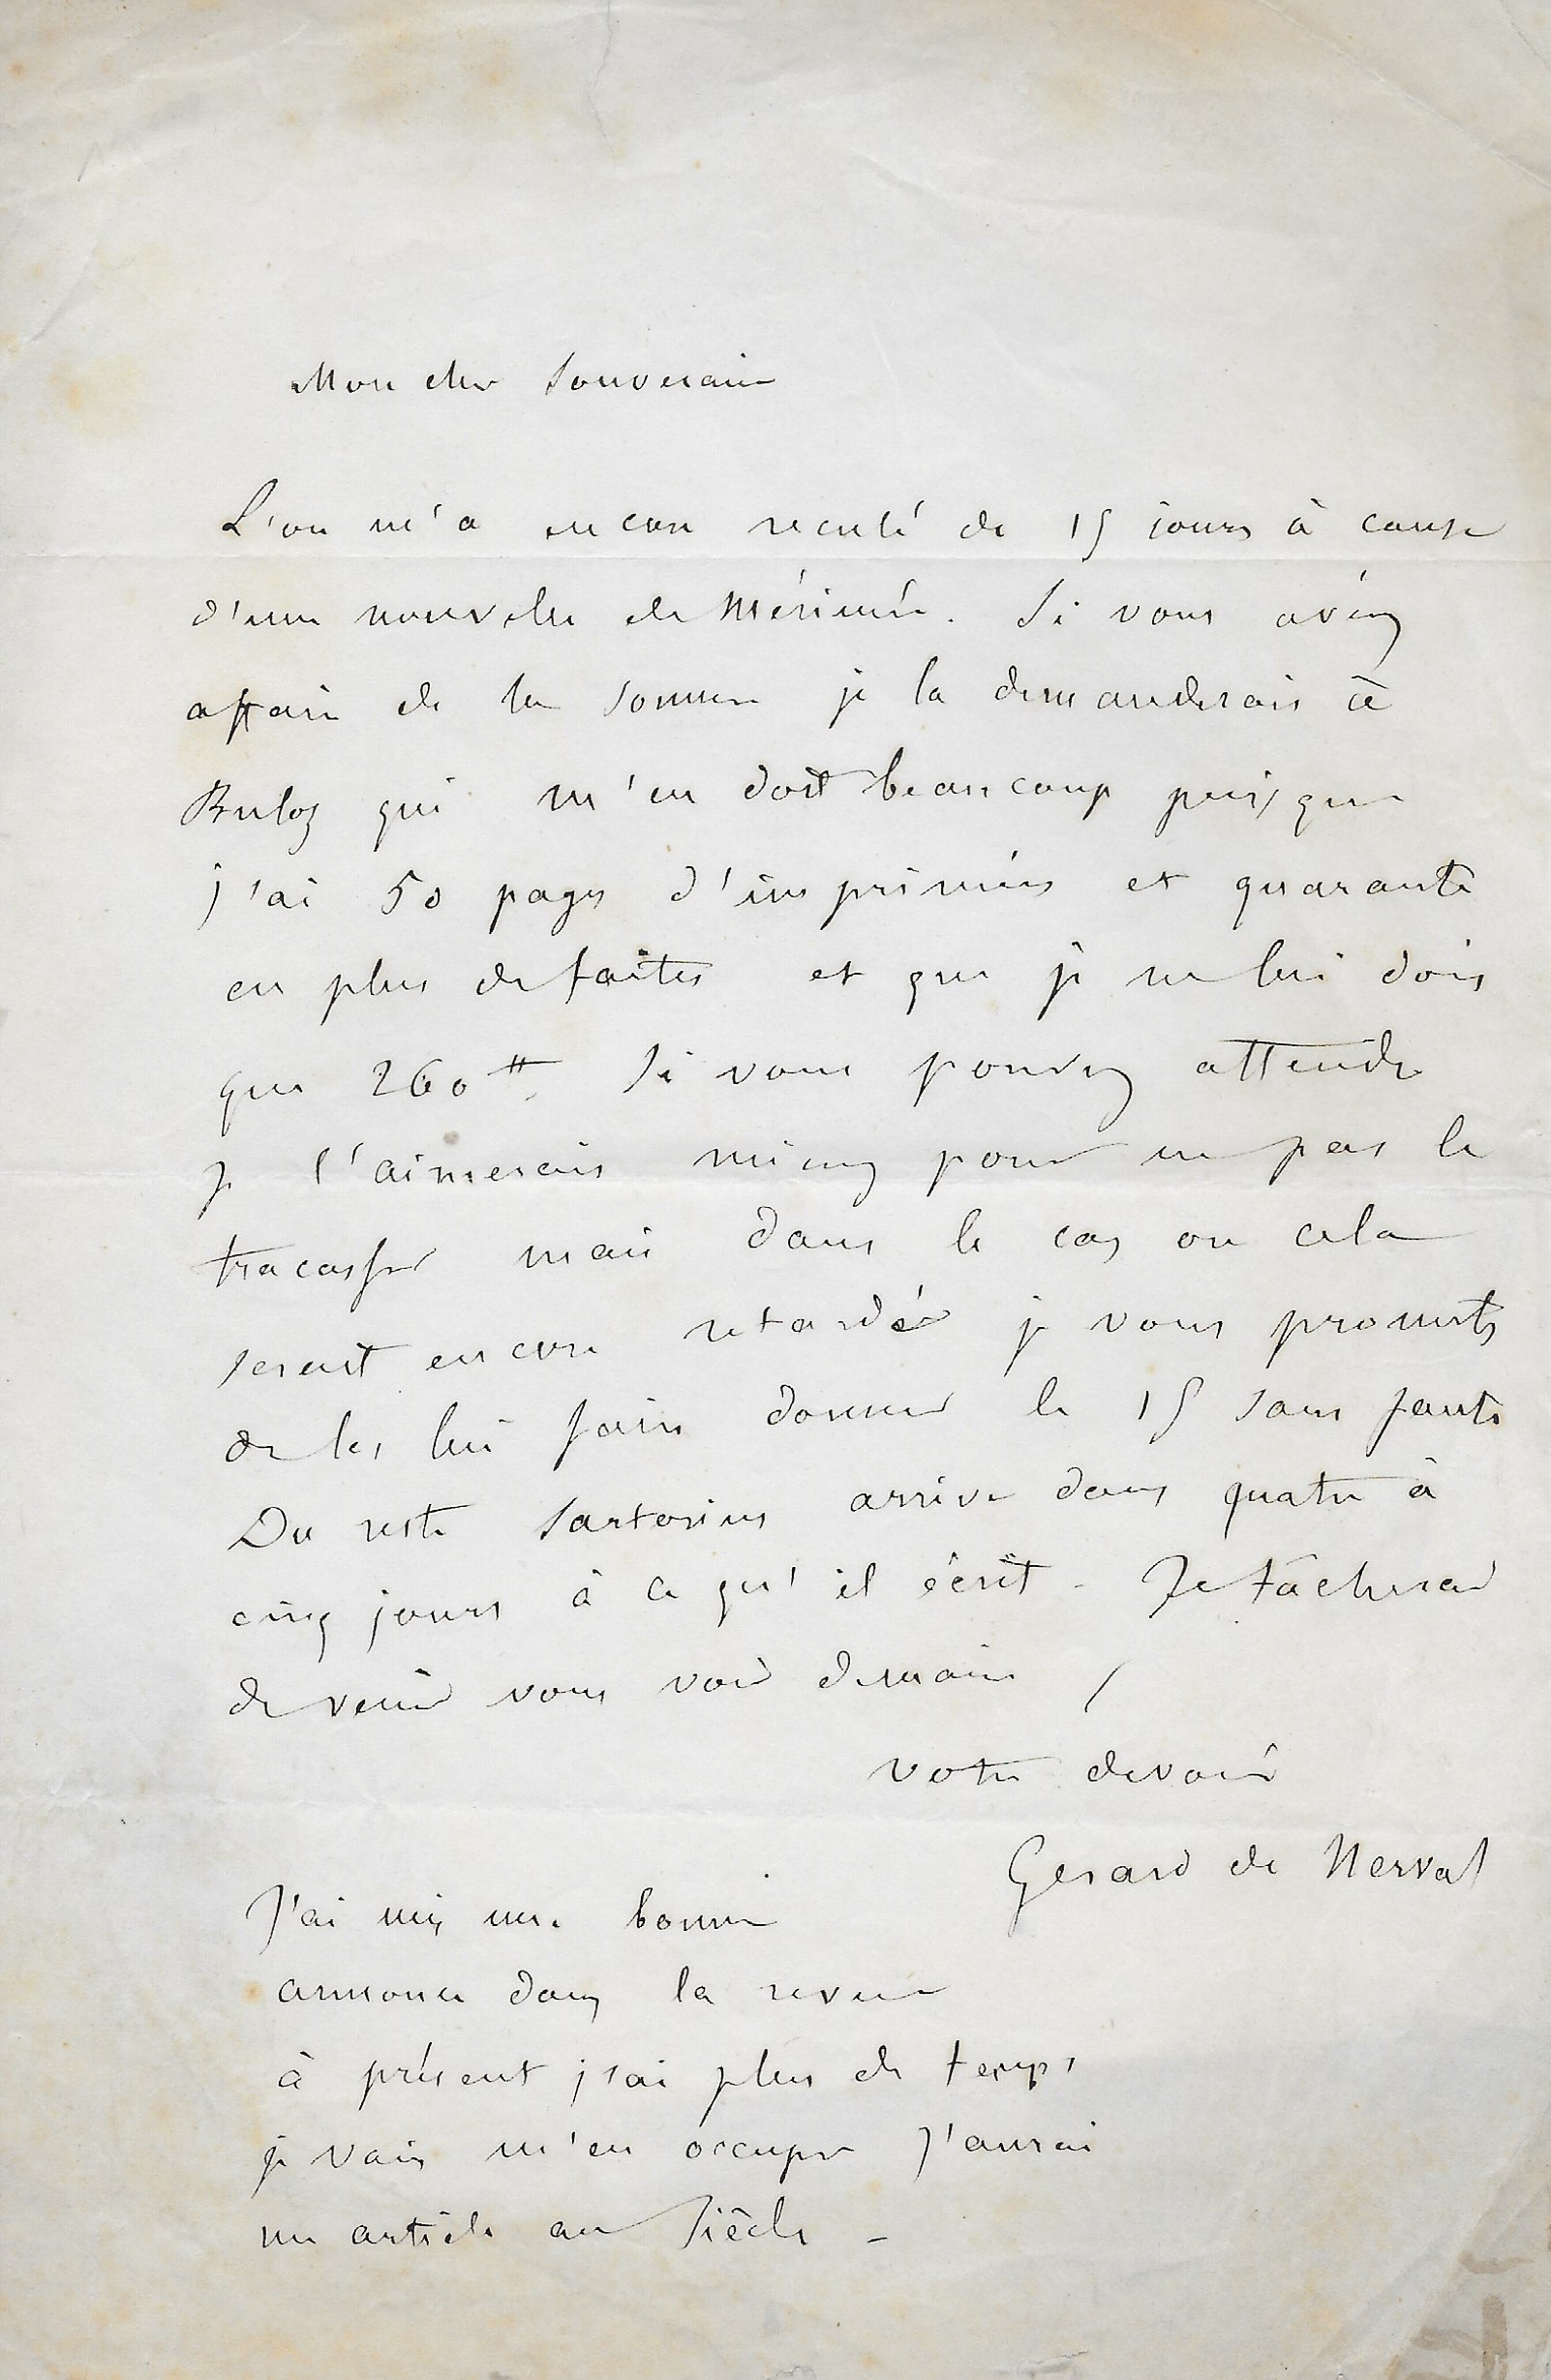 Mon cher Souverain
L'on m'a encore reculé de 15 jours à cause
d'une nouvelle de Mérimée. Si vous aviez
affaire de la somme je la demanderais à
Buloz qui m'en doit beaucoup puisque
j'ai 50 pages d'imprimées et quarante
en plus de faites et que je ne lui dois
que 260 ₶. Si vous pouvez attendre
je l'aimerais mieux pour ne pas le
tracasser mais dans le cas ou cela
serait encore retardé je vous promets
de les lui faire donner le 15 sans faute
Du reste Sartorius arrive dans quatre à
cinq jours à ce qu'il écrit - Je tâcherai
de venir vous voir demain
votre dévoué
Gerard de Nerval
J'ai mis une bonne
annonce dans la revue
à présent j'ai plus de temps
je vais m'en occuper J'aurai
un article au Siècle -